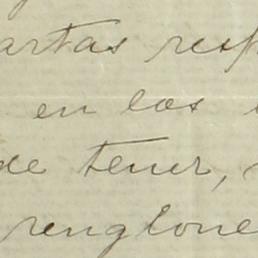 artas resp
en los
de tener,
renglone